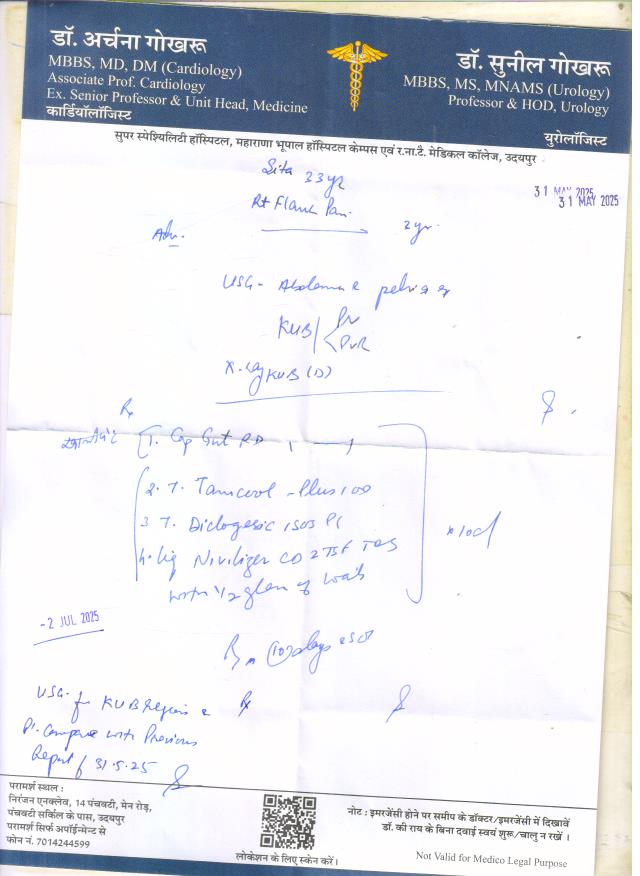 डॉ. अर्चना गोखरू
MBBS, MD, DM (Cardiology)
Associate Prof. Cardiology
Ex. Senior Professor & Unit Head, Medicine
कार्डियॉलॉजिस्ट
डॉ. सुनील गोखरू
MBBS, MS, MNAMS (Urology)
Professor & HOD, Urology
युरोलॉजिस्ट
सुपर स्पेश्यिलिटी हॉस्पिटल, महाराणा भूपाल हॉस्पिटल केम्पस एवं र.ना.टै. मेडिकल कॉलेज, उदयपुर
31 MAY 2025
31 MAY 2025
Sita 33 yr
Rt Flank Pain
2 yr.
Adv.
USG - Abdomen & pelvis
KUB
PVR
X-ray KUB (D)
Rx
1. Cap Gut RD 1 — 1
2. T. Tamcool - Plus 100
3 T. Diclogesic
4. Liq Nivilizer CO 2 TSF TDS
with 1/2 glass of
x 10d
- 2 JUL 2025
USG - for KUB Region
Compare with Previous
Report / 31.5.25
परामर्श स्थल :
निरंजन एनक्लेव, 14 पंचवटी, मेन रोड़,
पंचवटी सर्किल के पास, उदयपुर
परामर्श सिर्फ अपॉईनमेन्ट से
फोन नं. 7014244599
लोकेशन के लिए स्केन करें।
नोट : इमरजेंसी होने पर समीप के डॉक्टर/इमरजेंसी में दिखावें
डॉ. की राय के बिना दवाई स्वयं शुरू/चालु न रखें ।
Not Valid for Medico Legal Purpose